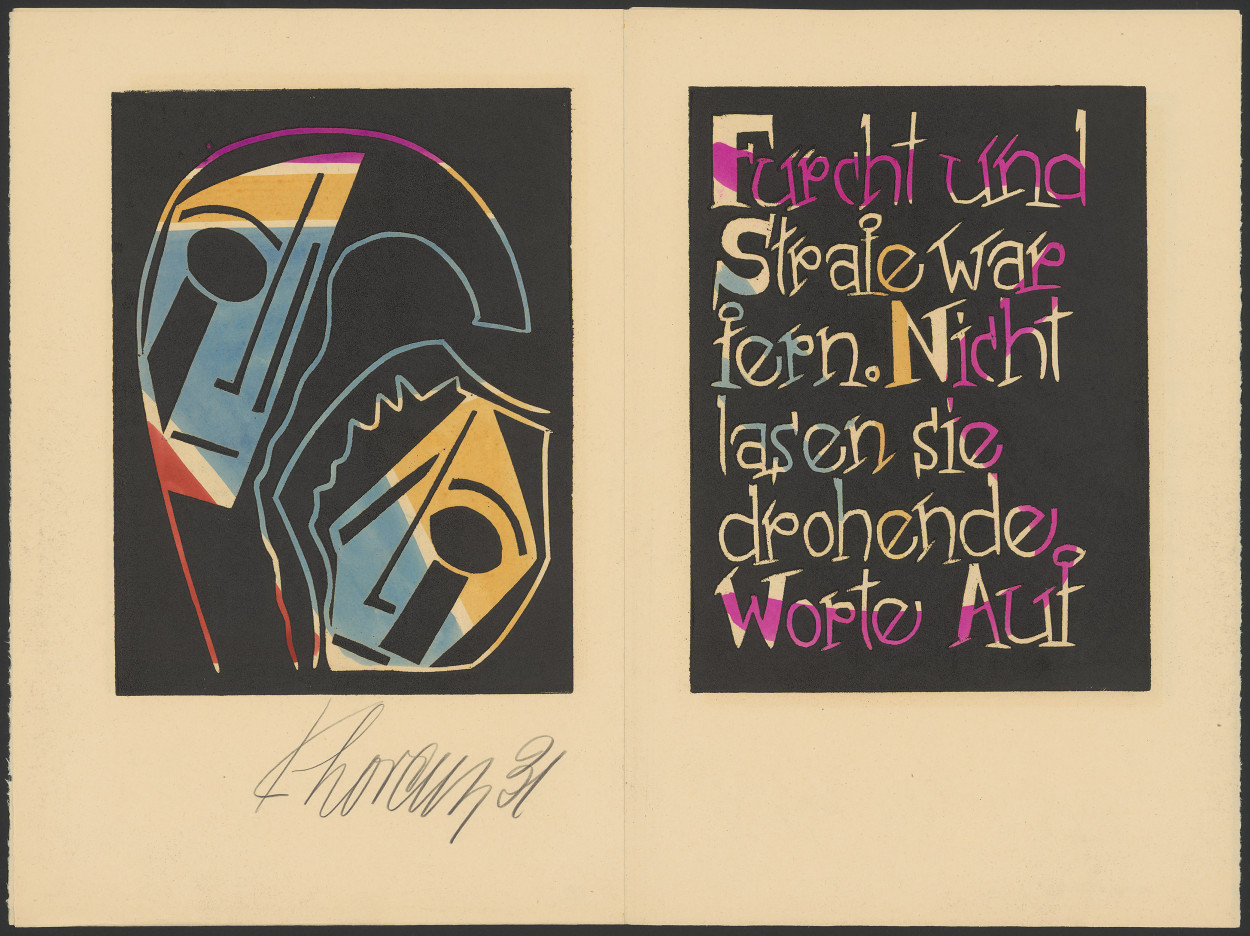 31
Furcht und
Strafe war
fern. Nicht
lasen sie
drohende
Worte Auf